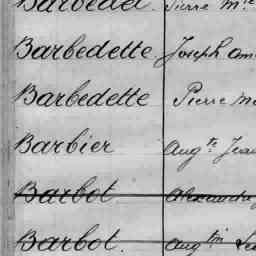 Barbedet Pierre M.ie
Barbedette Joseph
Barbedette Pierre
Barbier Aug.te Jean
Barbot Alexandre
Barbot. Aug.tin